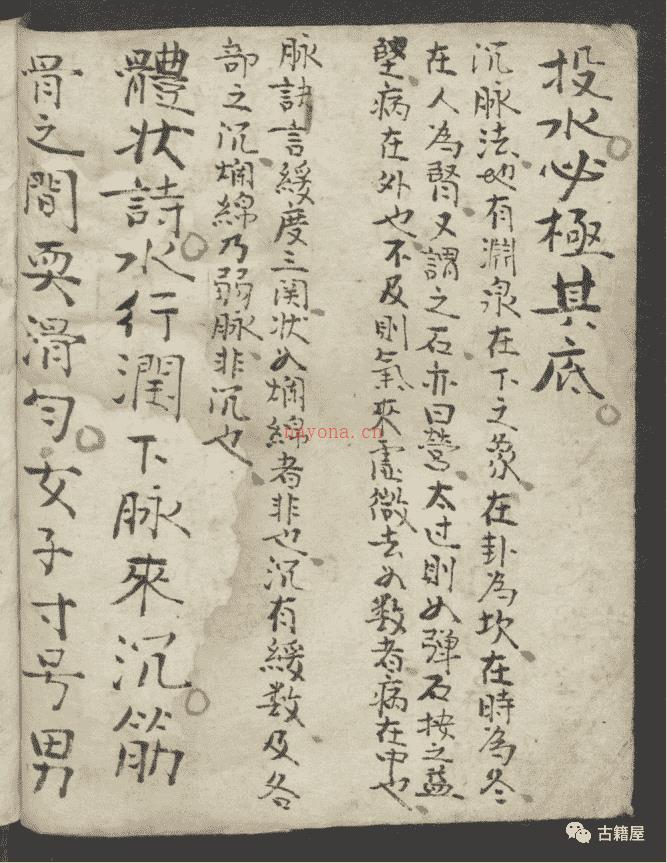 投水必極其底
沉脉法地有渊泉在下之象在卦為坎在時為冬
在人為腎又謂之石亦曰營太过則如弹石按之益
堅病在外也不及則氣來虚微去如数者病在中也
脉訣言緩度三関状如爛綿者非也沉有緩数及各
部之沉爛綿乃弱脉非沉也
體状詩水行潤下脉來沉筋
骨之間耎滑匀女子寸号男
nayona.cn
古籍屋